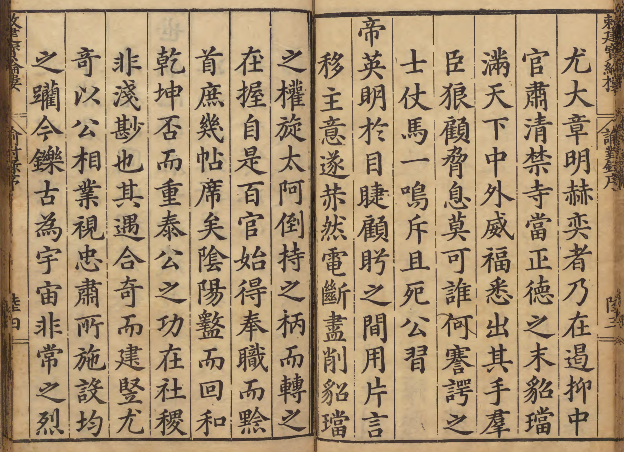 尤大章明赫奕者乃在遏抑中
官肅清禁寺當正德之末貂璫
滿天下中外威福悉出其手羣
臣狼顧脅息莫可誰何謇諤之
士仗馬一鳴斥且死公習
帝英明於目睫顧眄之間用片言
移主意遂赫然電斷盡削貂璫
之權旋太阿倒持之柄而轉之
在握自是百官始得奉職而黔
首庶幾帖席矣陰陽盭而回和
乾坤否而重泰公之功在社稷
非淺尠也其遇合奇而建竪尤
奇以公相業視忠肅所施設均
之躪今鑠古為宇宙非常之烈